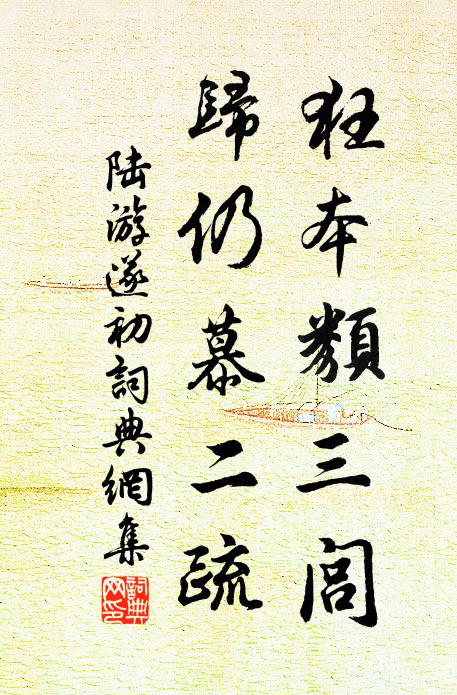 狂本類三閭
歸仍慕二疏
陸游遂初詞典網集
詞典
网印